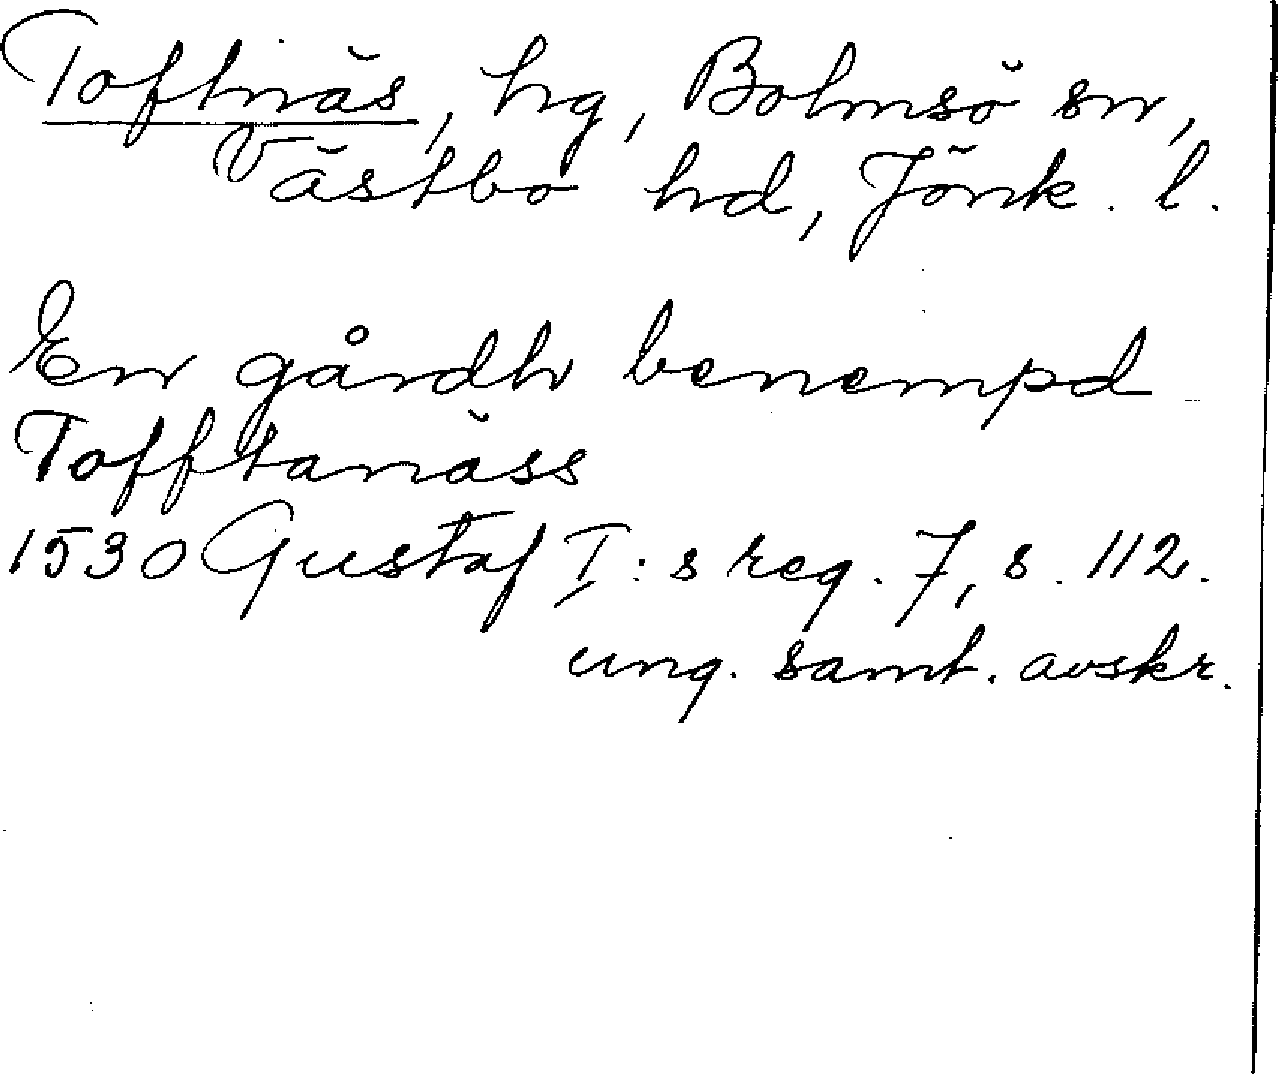 Toftnäs, hg, Bolmsö sn,
Västbo hd, Jönk. l.
En gårdh benempd
Tofftanäss
1530 Gustaf I:s reg. 7, s. 112.
ung. samt. avskr.